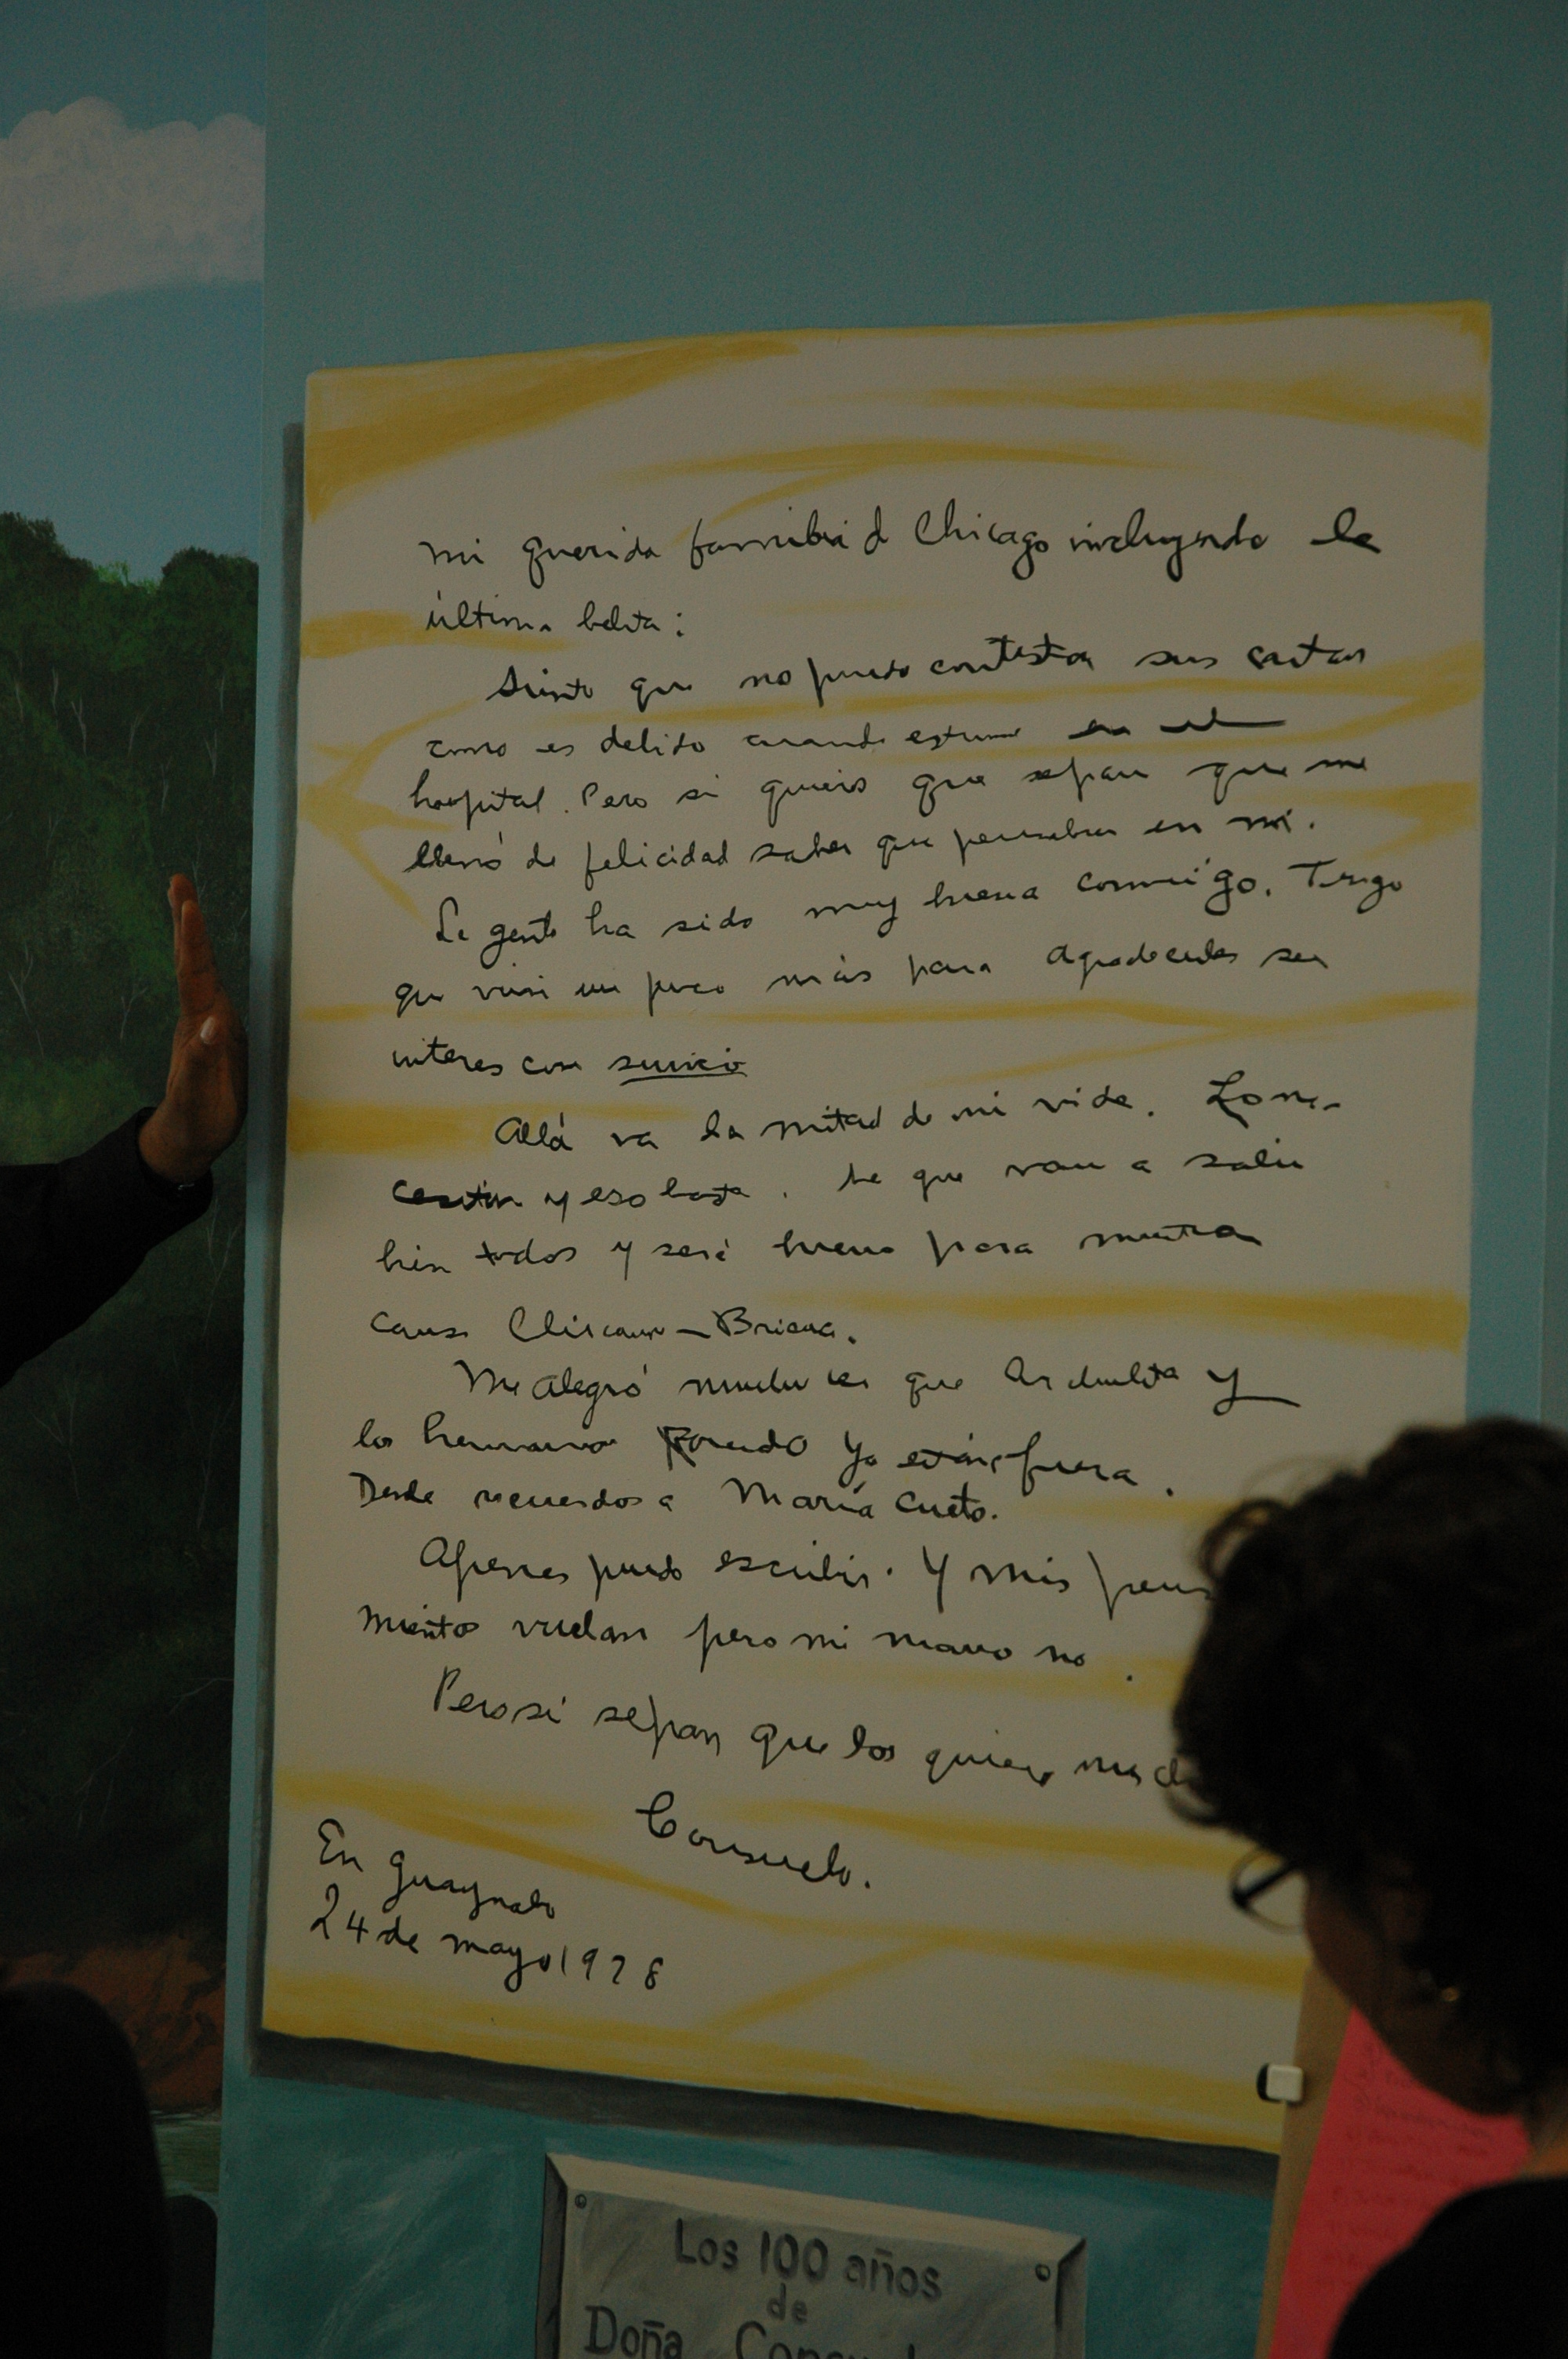 mi querida familia d Chicago incluyendo la
última belita:
Siento que no puedo contestar sus cartas
como es debido cuando estuve en el
hospital. Pero si quiero que sepan que me
llenó de felicidad saber que pensaban en mi.
La gente ha sido muy buena conmigo. Tengo
que vivir un poco más para agradecerles su
interes con
Allá va la mitad de mi vida. Lo
y eso basta. Se que van a salir
bien todos y será bueno para nuestra
causa
Me alegró mucho que y
los hermanos ya están fuera.
Desde recuerdos a María Cueto.
Apenas puedo escribir. Y mis
mientos vuelan pero mi mano no.
Pero si sepan que los quiero
Consuelo.
En Guaynabo
24 de mayo 1978
Los 100 años
de
Doña